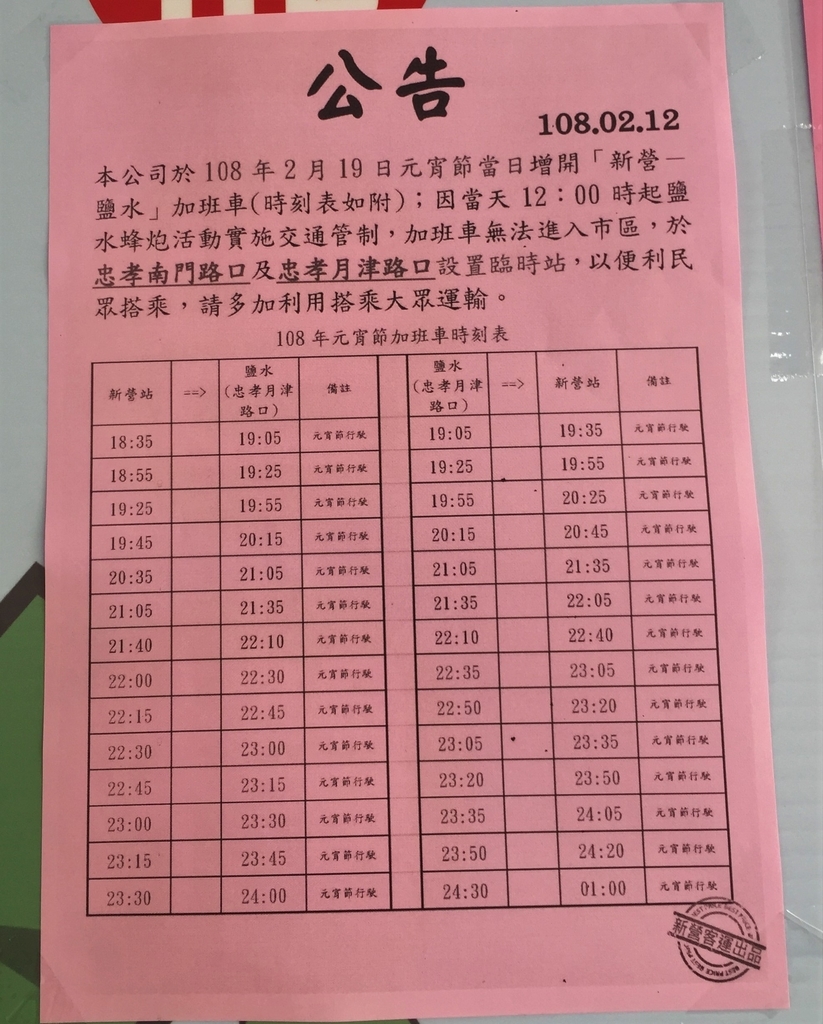 公告
108.02.12
本公司於 108 年 2 月 19 日元宵節當日增開「新營－
鹽水」加班車(時刻表如附)；因當天 12：00 時起鹽
水蜂炮活動實施交通管制，加班車無法進入市區，於
忠孝南門路口及忠孝月津路口設置臨時站，以便利民
眾搭乘，請多加利用搭乘大眾運輸。
108 年元宵節加班車時刻表
新營站 ==> 鹽水(忠孝月津路口) 備註 鹽水(忠孝月津路口) ==> 新營站 備註
18:35 19:05 元宵節行駛 19:05 19:35 元宵節行駛
18:55 19:25 元宵節行駛 19:25 19:55 元宵節行駛
19:25 19:55 元宵節行駛 19:55 20:25 元宵節行駛
19:45 20:15 元宵節行駛 20:15 20:45 元宵節行駛
20:35 21:05 元宵節行駛 21:05 21:35 元宵節行駛
21:05 21:35 元宵節行駛 21:35 22:05 元宵節行駛
21:40 22:10 元宵節行駛 22:10 22:40 元宵節行駛
22:00 22:30 元宵節行駛 22:35 23:05 元宵節行駛
22:15 22:45 元宵節行駛 22:50 23:20 元宵節行駛
22:30 23:00 元宵節行駛 23:05 23:35 元宵節行駛
22:45 23:15 元宵節行駛 23:20 23:50 元宵節行駛
23:00 23:30 元宵節行駛 23:35 24:05 元宵節行駛
23:15 23:45 元宵節行駛 23:50 24:20 元宵節行駛
23:30 24:00 元宵節行駛 24:30 01:00 元宵節行駛
新營客運出品
BEST PRICE